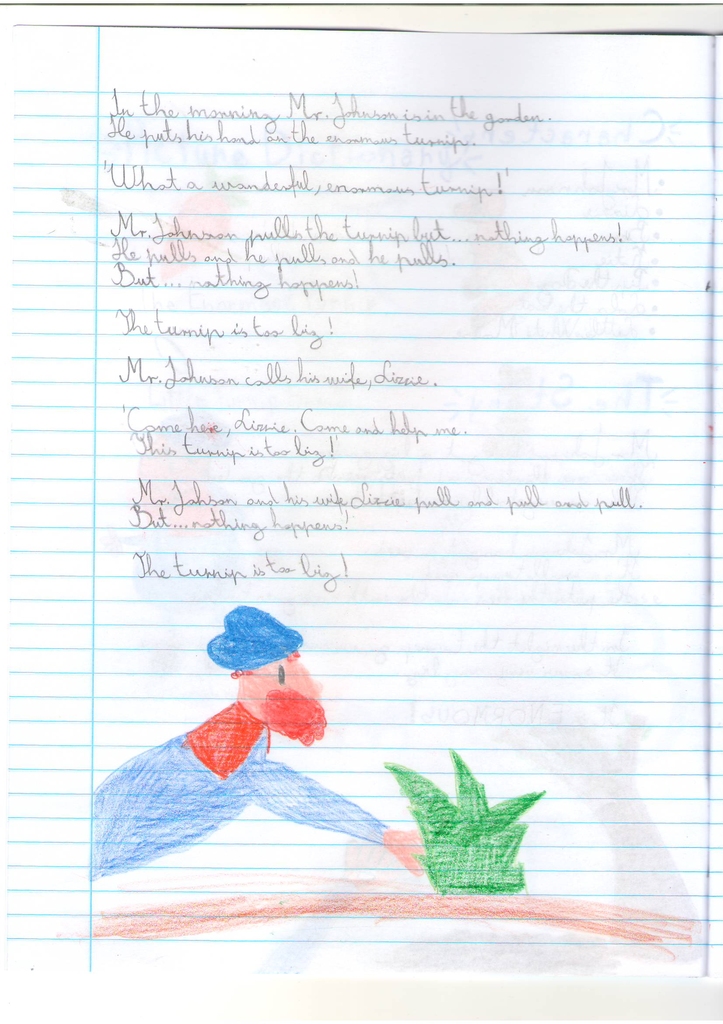 In the morning Mr. Johnson is in the garden.
He puts his hand on the enormous turnip.
'What a wonderful, enormous turnip!'
Mr. Johnson pulls the turnip but... nothing happens!
He pulls and he pulls and he pulls.
But... nothing happens!
The turnip is too big!
Mr. Johnson calls his wife, Lizzie.
'Come here, Lizzie. Come and help me.
This turnip is too big!'
Mr. Johson and his wife Lizzie pull and pull and pull.
But... nothing happens!
The turnip is too big!